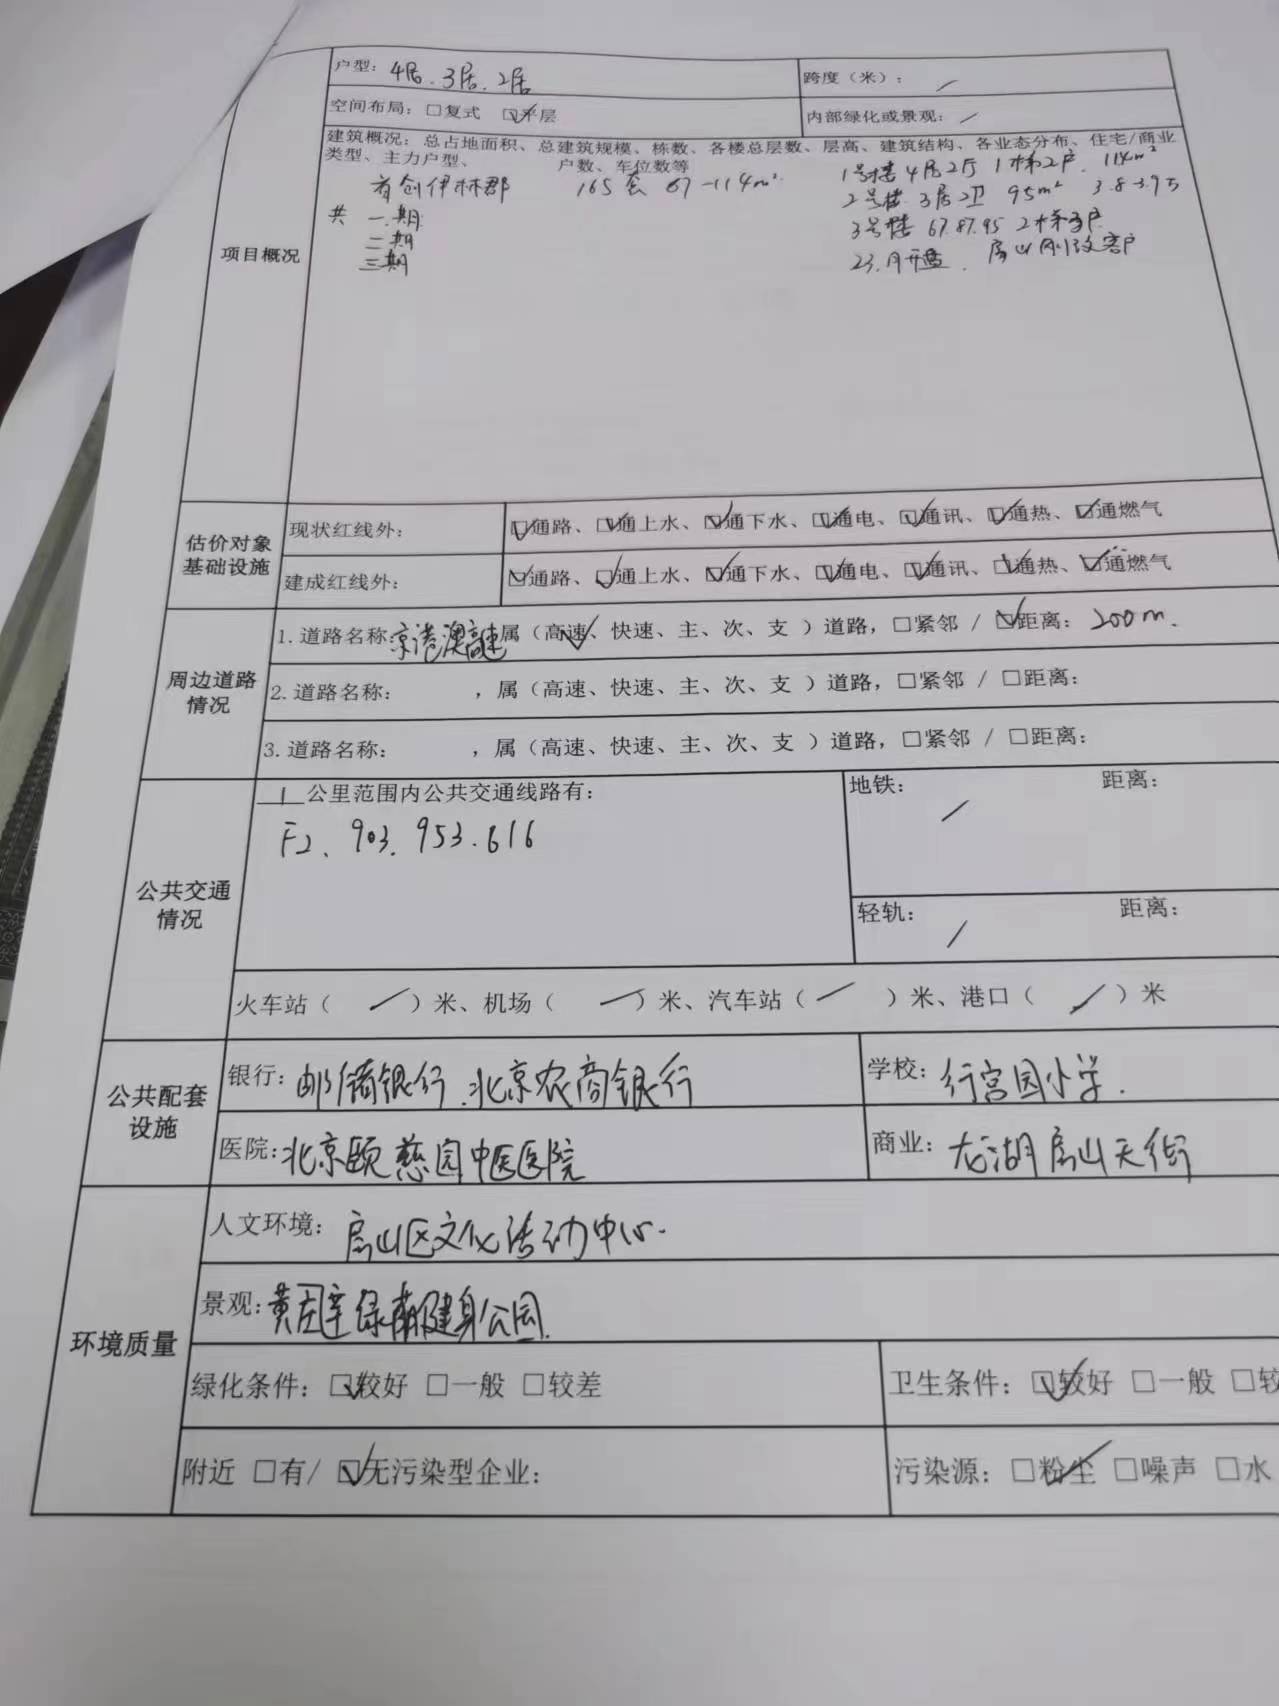 户型：4居.3居.2居
跨度（米）：/
空间布局：□复式 ☑平层
内部绿化或景观：/
项目概况
建筑概况：总占地面积、总建筑规模、栋数、各楼总层数、层高、建筑结构、各业态分布、住宅/商业
类型、主力户型、 户数、车位数等
首创伊林郡 165套 67-114m²
共 一期
二期
三期
1号楼 4居2厅 1梯2户. 114m²
2号楼 3居2卫 95m² 3.8-3.95
3号楼 67.87.95 2梯3户
23. 月开盘. 房山刚改客户
估价对象
基础设施
现状红线外：
☑通路、☑通上水、☑通下水、☑通电、☑通讯、☑通热、☑通燃气
建成红线外：
☑通路、☑通上水、☑通下水、☑通电、☑通讯、☑通热、☑通燃气
周边道路
情况
1.道路名称：京港澳高速属（高速、快速、主、次、支 ）道路，□紧邻 / ☑距离：200m.
2.道路名称： ，属（高速、快速、主、次、支 ）道路，□紧邻 / □距离：
3.道路名称： ，属（高速、快速、主、次、支 ）道路，□紧邻 / □距离：
公共交通
情况
1 公里范围内公共交通线路有：
F2、903.953.616
地铁： / 距离：
轻轨： / 距离：
火车站（ / ）米、机场（ / ）米、汽车站（ / ）米、港口（ / ）米
公共配套
设施
银行：邮储银行.北京农商银行
学校：行宫园小学.
医院：北京颐慈园中医医院
商业：龙湖房山天街
环境质量
人文环境：房山区文化活动中心.
景观：黄辛庄绿南健身公园.
绿化条件：☑较好 □一般 □较差
卫生条件：☑较好 □一般 □较
附近 □有/ ☑无污染型企业：
污染源：□粉尘 □噪声 □水